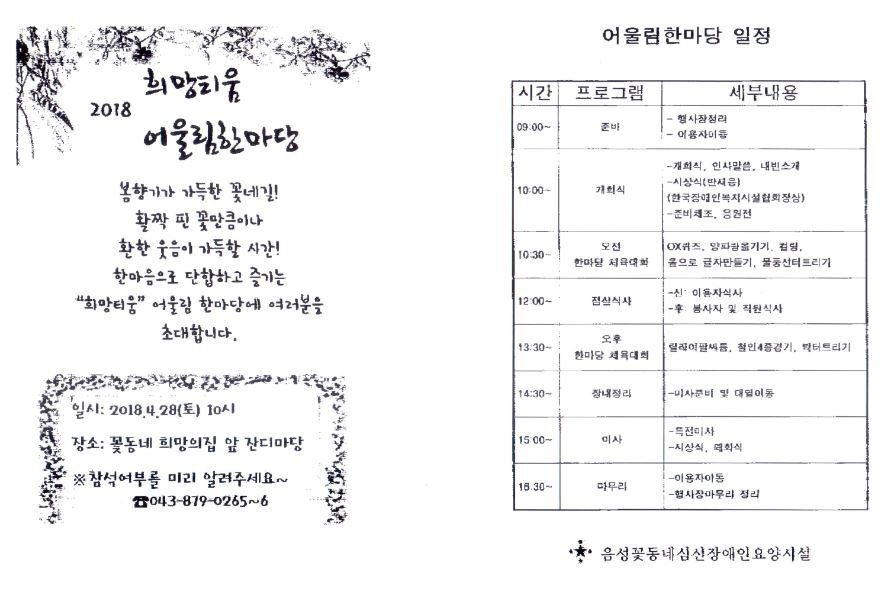 희망티움
2018
어울림한마당
봄향기가 가득한 꽃네길!
활짝 핀 꽃만큼이나
환한 웃음이 가득할 시간!
한마음으로 단합하고 즐기는
"희망티움" 어울림 한마당에 여러분을
초대합니다.
일시: 2018.4.28(토) 10시
장소: 꽃동네 희망의집 앞 잔디마당
※참석여부를 미리 알려주세요~
☎043-879-0265~6
어울림한마당 일정
시간 프로그램 세부내용
09:00~ 준비
- 행사장정리
- 이용자이동
10:00~ 개회식
-개회식, 인사말씀, 내빈소개
-시상식(반채움)
(한국장애인복지시설협회장상)
-준비체조, 응원전
10:30~ 오전
한마당 체육대회
OX퀴즈, 양파링옮기기, 컬링,
몸으로 글자만들기, 물풍선터트리기
12:00~ 점심식사
-선: 이용자식사
-후: 봉사자 및 직원식사
13:30~ 오후
한마당 체육대회
릴레이팔씨름, 철인4종경기, 박터트리기
14:30~ 장내정리
-미사준비 및 대열이동
15:00~ 미사
-특전미사
-시상식, 폐회식
16:30~ 마무리
-이용자이동
-행사장마무리 정리
음성꽃동네심신장애인요양시설